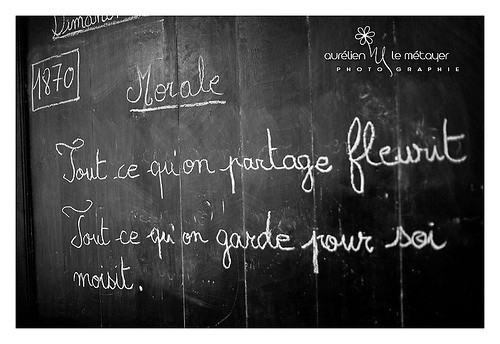 Dimanche
aurélien le métayer
PHOTOGRAPHIE
1870
Morale
Tout ce qu'on partage fleurit
Tout ce qu'on garde pour soi
moisit.